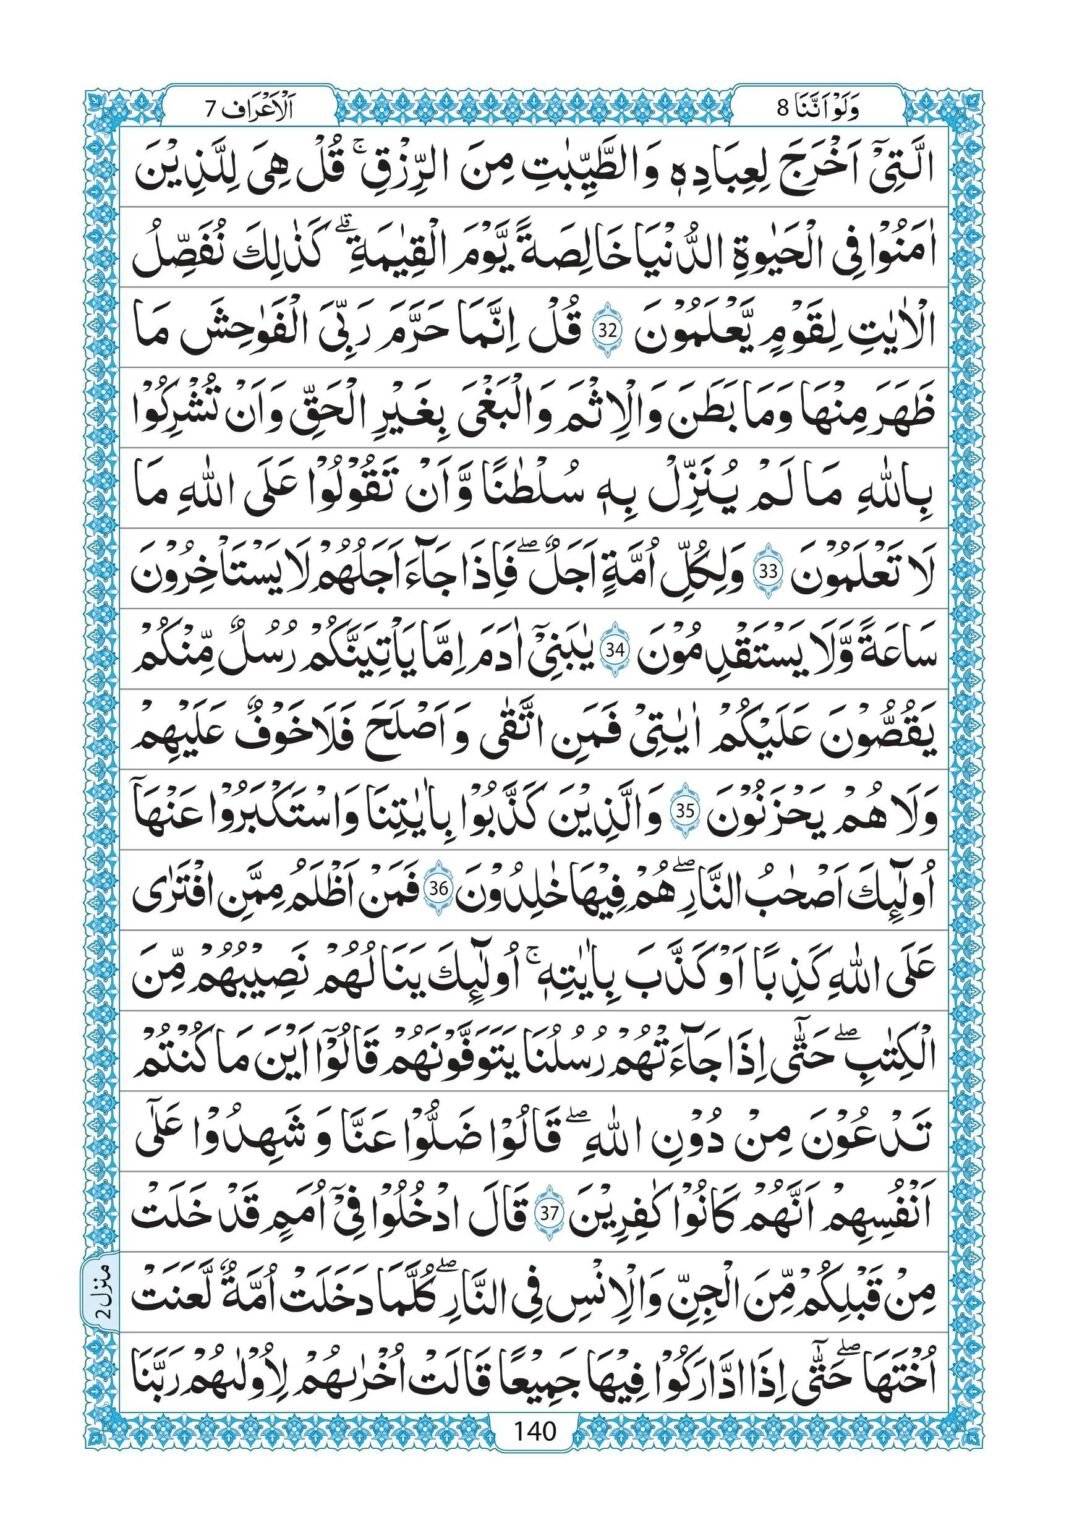 وَلَوْ اَنَّنَا 8
اَلْاَعْرَاف 7
الَّتِىْۤ اَخْرَجَ لِعِبَادِهٖ وَالطَّيِّبٰتِ مِنَ الرِّزْقِ ۚ قُلْ هِىَ لِلَّذِيْنَ
اٰمَنُوْا فِى الْحَيٰوةِ الدُّنْيَا خَالِصَةً يَّوْمَ الْقِيٰمَةِ ؕ كَذٰلِكَ نُفَصِّلُ
الْاٰيٰتِ لِقَوْمٍ يَّعْلَمُوْنَ 32 قُلْ اِنَّمَا حَرَّمَ رَبِّىَ الْفَوَاحِشَ مَا
ظَهَرَ مِنْهَا وَمَا بَطَنَ وَالْاِثْمَ وَالْبَغْىَ بِغَيْرِ الْحَقِّ وَاَنْ تُشْرِكُوْا
بِاللّٰهِ مَا لَمْ يُنَزِّلْ بِهٖ سُلْطٰنًا وَّاَنْ تَقُوْلُوْا عَلَى اللّٰهِ مَا
لَا تَعْلَمُوْنَ 33 وَلِكُلِّ اُمَّةٍ اَجَلٌ ۖ فَاِذَا جَآءَ اَجَلُهُمْ لَا يَسْتَاْخِرُوْنَ
سَاعَةً وَّلَا يَسْتَقْدِمُوْنَ 34 يٰبَنِىْۤ اٰدَمَ اِمَّا يَاْتِيَنَّكُمْ رُسُلٌ مِّنْكُمْ
يَقُصُّوْنَ عَلَيْكُمْ اٰيٰتِىْ فَمَنِ اتَّقٰى وَاَصْلَحَ فَلَا خَوْفٌ عَلَيْهِمْ
وَلَا هُمْ يَحْزَنُوْنَ 35 وَالَّذِيْنَ كَذَّبُوْا بِاٰيٰتِنَا وَاسْتَكْبَرُوْا عَنْهَاۤ
اُولٰٓئِكَ اَصْحٰبُ النَّارِ ۖ هُمْ فِيْهَا خٰلِدُوْنَ 36 فَمَنْ اَظْلَمُ مِمَّنِ افْتَرٰى
عَلَى اللّٰهِ كَذِبًا اَوْ كَذَّبَ بِاٰيٰتِهٖ ۚ اُولٰٓئِكَ يَنَالُهُمْ نَصِيْبُهُمْ مِّنَ
الْكِتٰبِ ۖ حَتّٰٓى اِذَا جَآءَتْهُمْ رُسُلُنَا يَتَوَفَّوْنَهُمْ قَالُوْۤا اَيْنَ مَا كُنْتُمْ
تَدْعُوْنَ مِنْ دُوْنِ اللّٰهِ ۖ قَالُوْا ضَلُّوْا عَنَّا وَ شَهِدُوْا عَلٰٓى
اَنْفُسِهِمْ اَنَّهُمْ كَانُوْا كٰفِرِيْنَ 37 قَالَ ادْخُلُوْا فِىْۤ اُمَمٍ قَدْ خَلَتْ
مِنْ قَبْلِكُمْ مِّنَ الْجِنِّ وَالْاِنْسِ فِى النَّارِ ۖ كُلَّمَا دَخَلَتْ اُمَّةٌ لَّعَنَتْ
اُخْتَهَا ۖ حَتّٰٓى اِذَا ادَّارَكُوْا فِيْهَا جَمِيْعًا قَالَتْ اُخْرٰىهُمْ لِاُوْلٰىهُمْ رَبَّنَا
منزل 2
140